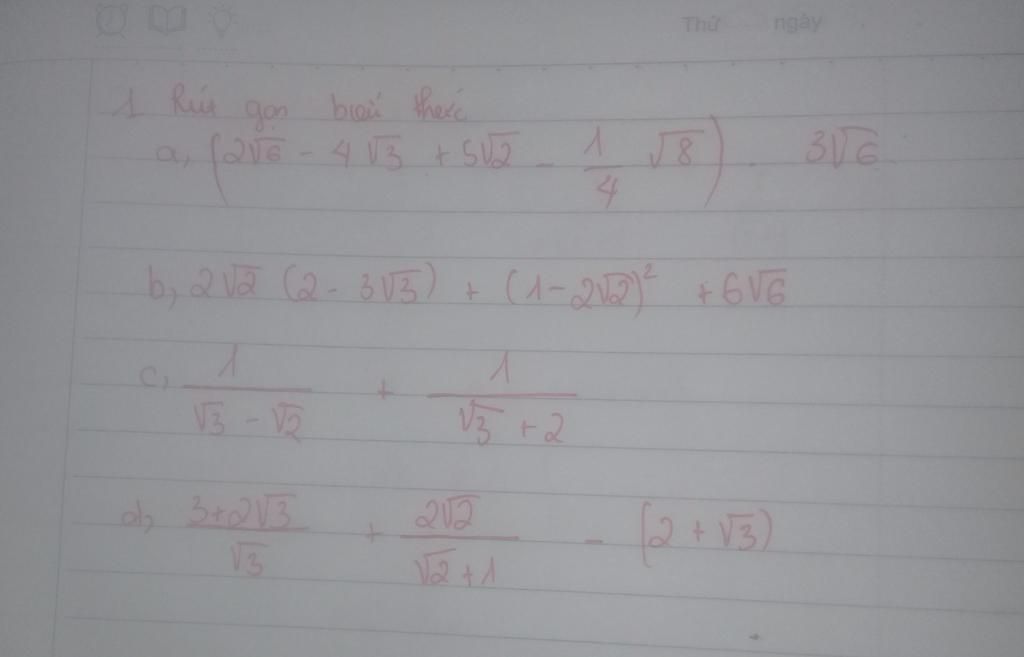 Thứ ngày
1 Rút gọn biểu thức
a, (2√6 - 4√3 + 5√2 - 1/4 √8) . 3√6
b, 2√2 (2 - 3√3) + (1 - 2√2)² + 6√6
c, 1/(√3 - √2) + 1/(√3 + 2)
d, (3+2√3)/√3 + 2√2/(√2+1) - (2 + √3)